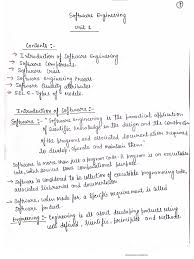 1
Software Engineering
Unit 1
Contents :-
→ Introduction of Software Engineering
→ Software Components
→ Software Crisis
→ Software Engineering Process
→ Software Quality attributes
→ SDLC - Types of models.
Introduction of Software :-
Software :- "Software engineering is the practical application
of scientific knowledge in the design and the construction
of the programs and associated document often required
to develop, operate and maintain them."
Software is more than just a program code. A program is an executable
code, which serves some computational purpose.
Software is considered to be collection of executable programming code,
associated libraries and documentation.
Software, when made for a specific requirement is called
Software product.
Engineering :- Engineering is all about developing products using
well defined, scientific principles and methods.